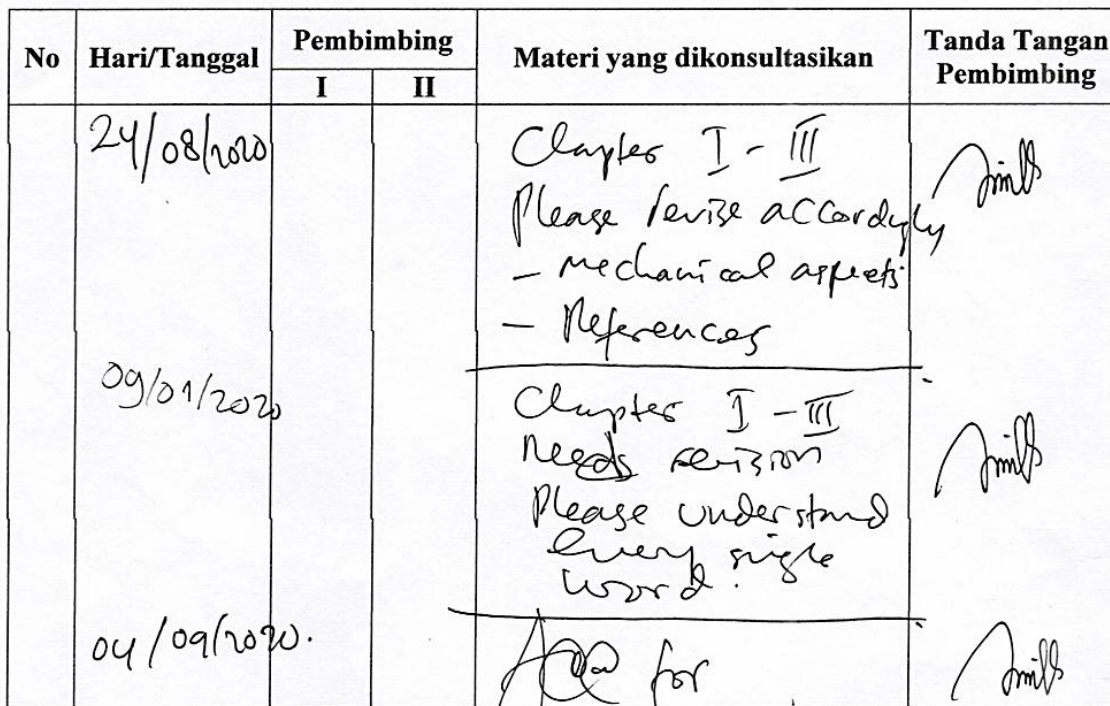 No Hari/Tanggal Pembimbing Materi yang dikonsultasikan Tanda Tangan Pembimbing
I II
24/08/2020 Chapter I - III
Please revise accordingly
- Mechanical aspects
- References
09/01/2020 Chapter I - III
Needs revision
Please understand
every single
word.
04/09/2020. for